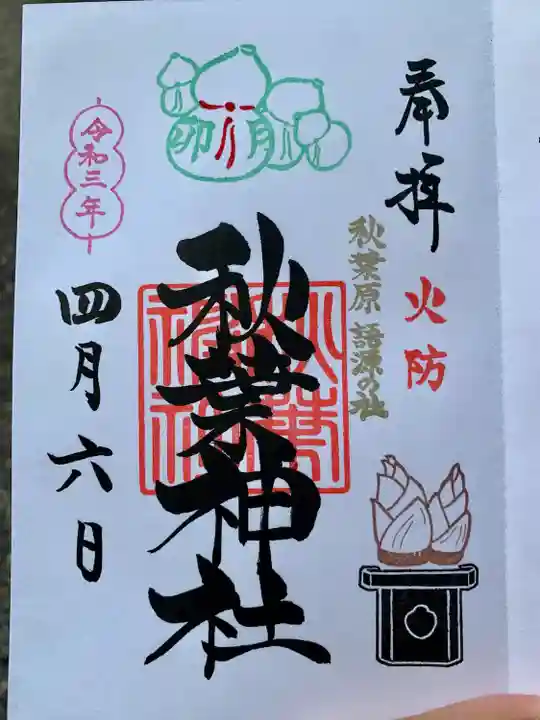 奉拝
火防
秋葉原 語源の社
卯月
秋葉神社
令和三年
四月六日